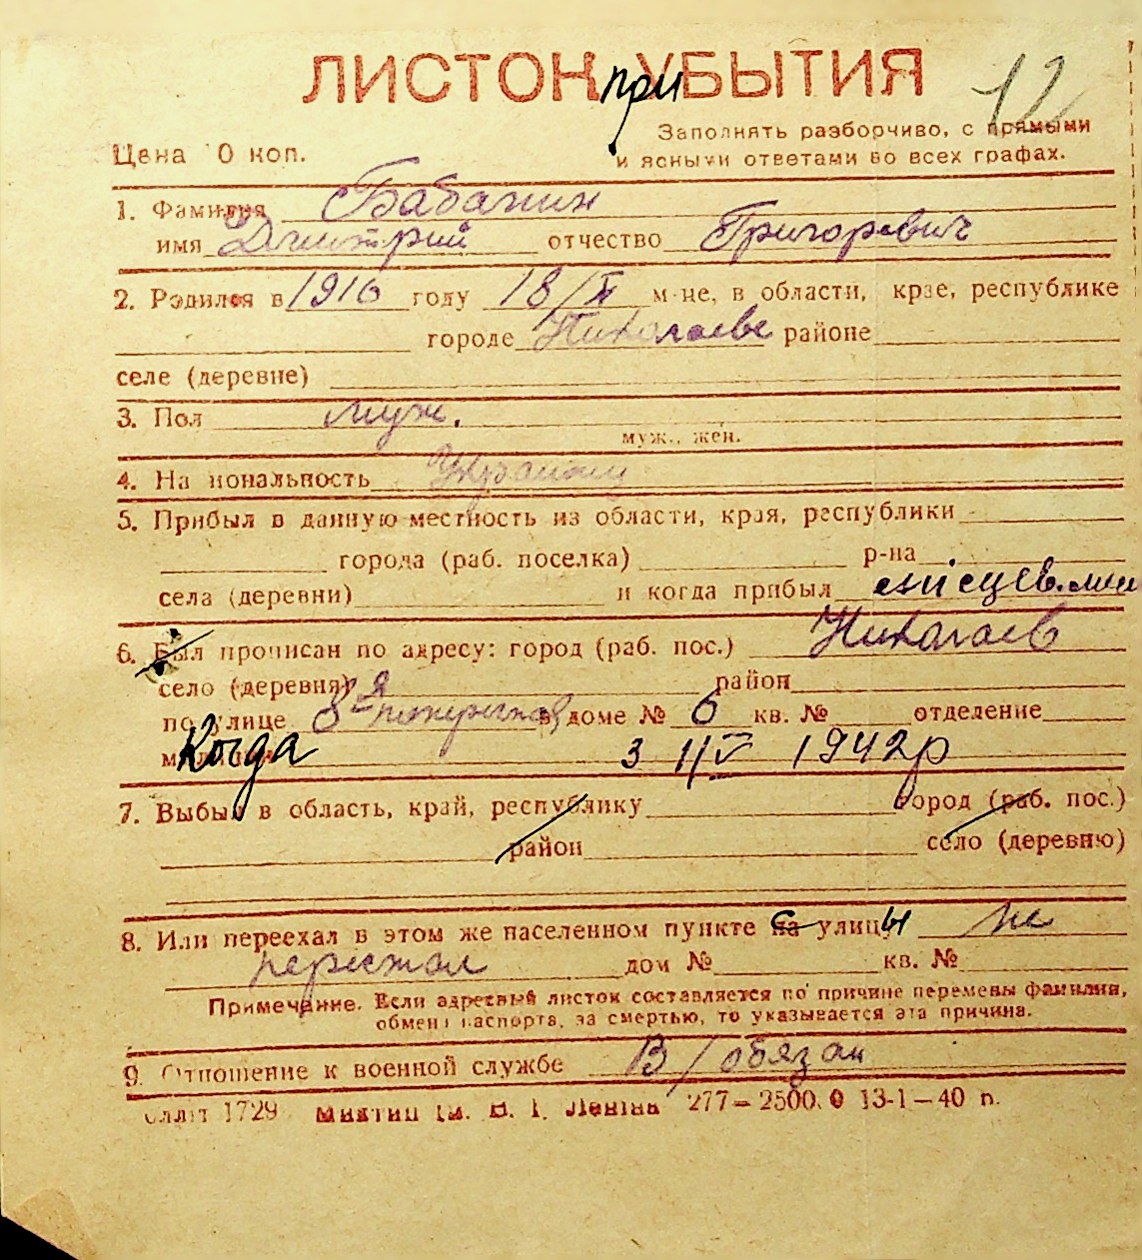 ЛИСТОК при УБЫТИЯ 12
Заполнять разборчиво, с прямыми
Цена 10 коп. и ясными ответами во всех графах.
1. Фамилия Бабанин
имя Дмитрий отчество Григоревич
2. Родился в 1916 году 18/II м-це, в области, крае, республике
городе Николаеве районе
селе (деревне)
3. Пол муж.
муж., жен.
4. Национальность Украинец
5. Прибыл в данную местность из области, края, республики
города (раб. поселка) р-на
села (деревни) и когда прибыл
6. Был прописан по адресу: город (раб. пос.) Николаев
село (деревня) район
по улице 8-я поперечная в доме № 6 кв. № отделение
Когда 3 1/IV 1942р
7. Выбыл в область, край, республику город (раб. пос.)
район село (деревню)
8. Или переехал в этом же населенном пункте с улицы не
переезжал дом № кв. №
Примечание. Если адресный листок составляется по причине перемены фамилии,
обмена паспорта, за смертью, то указывается эта причина.
9. Отношение к военной службе В/обязан
1729 277—2500.0 13-1—40 п.